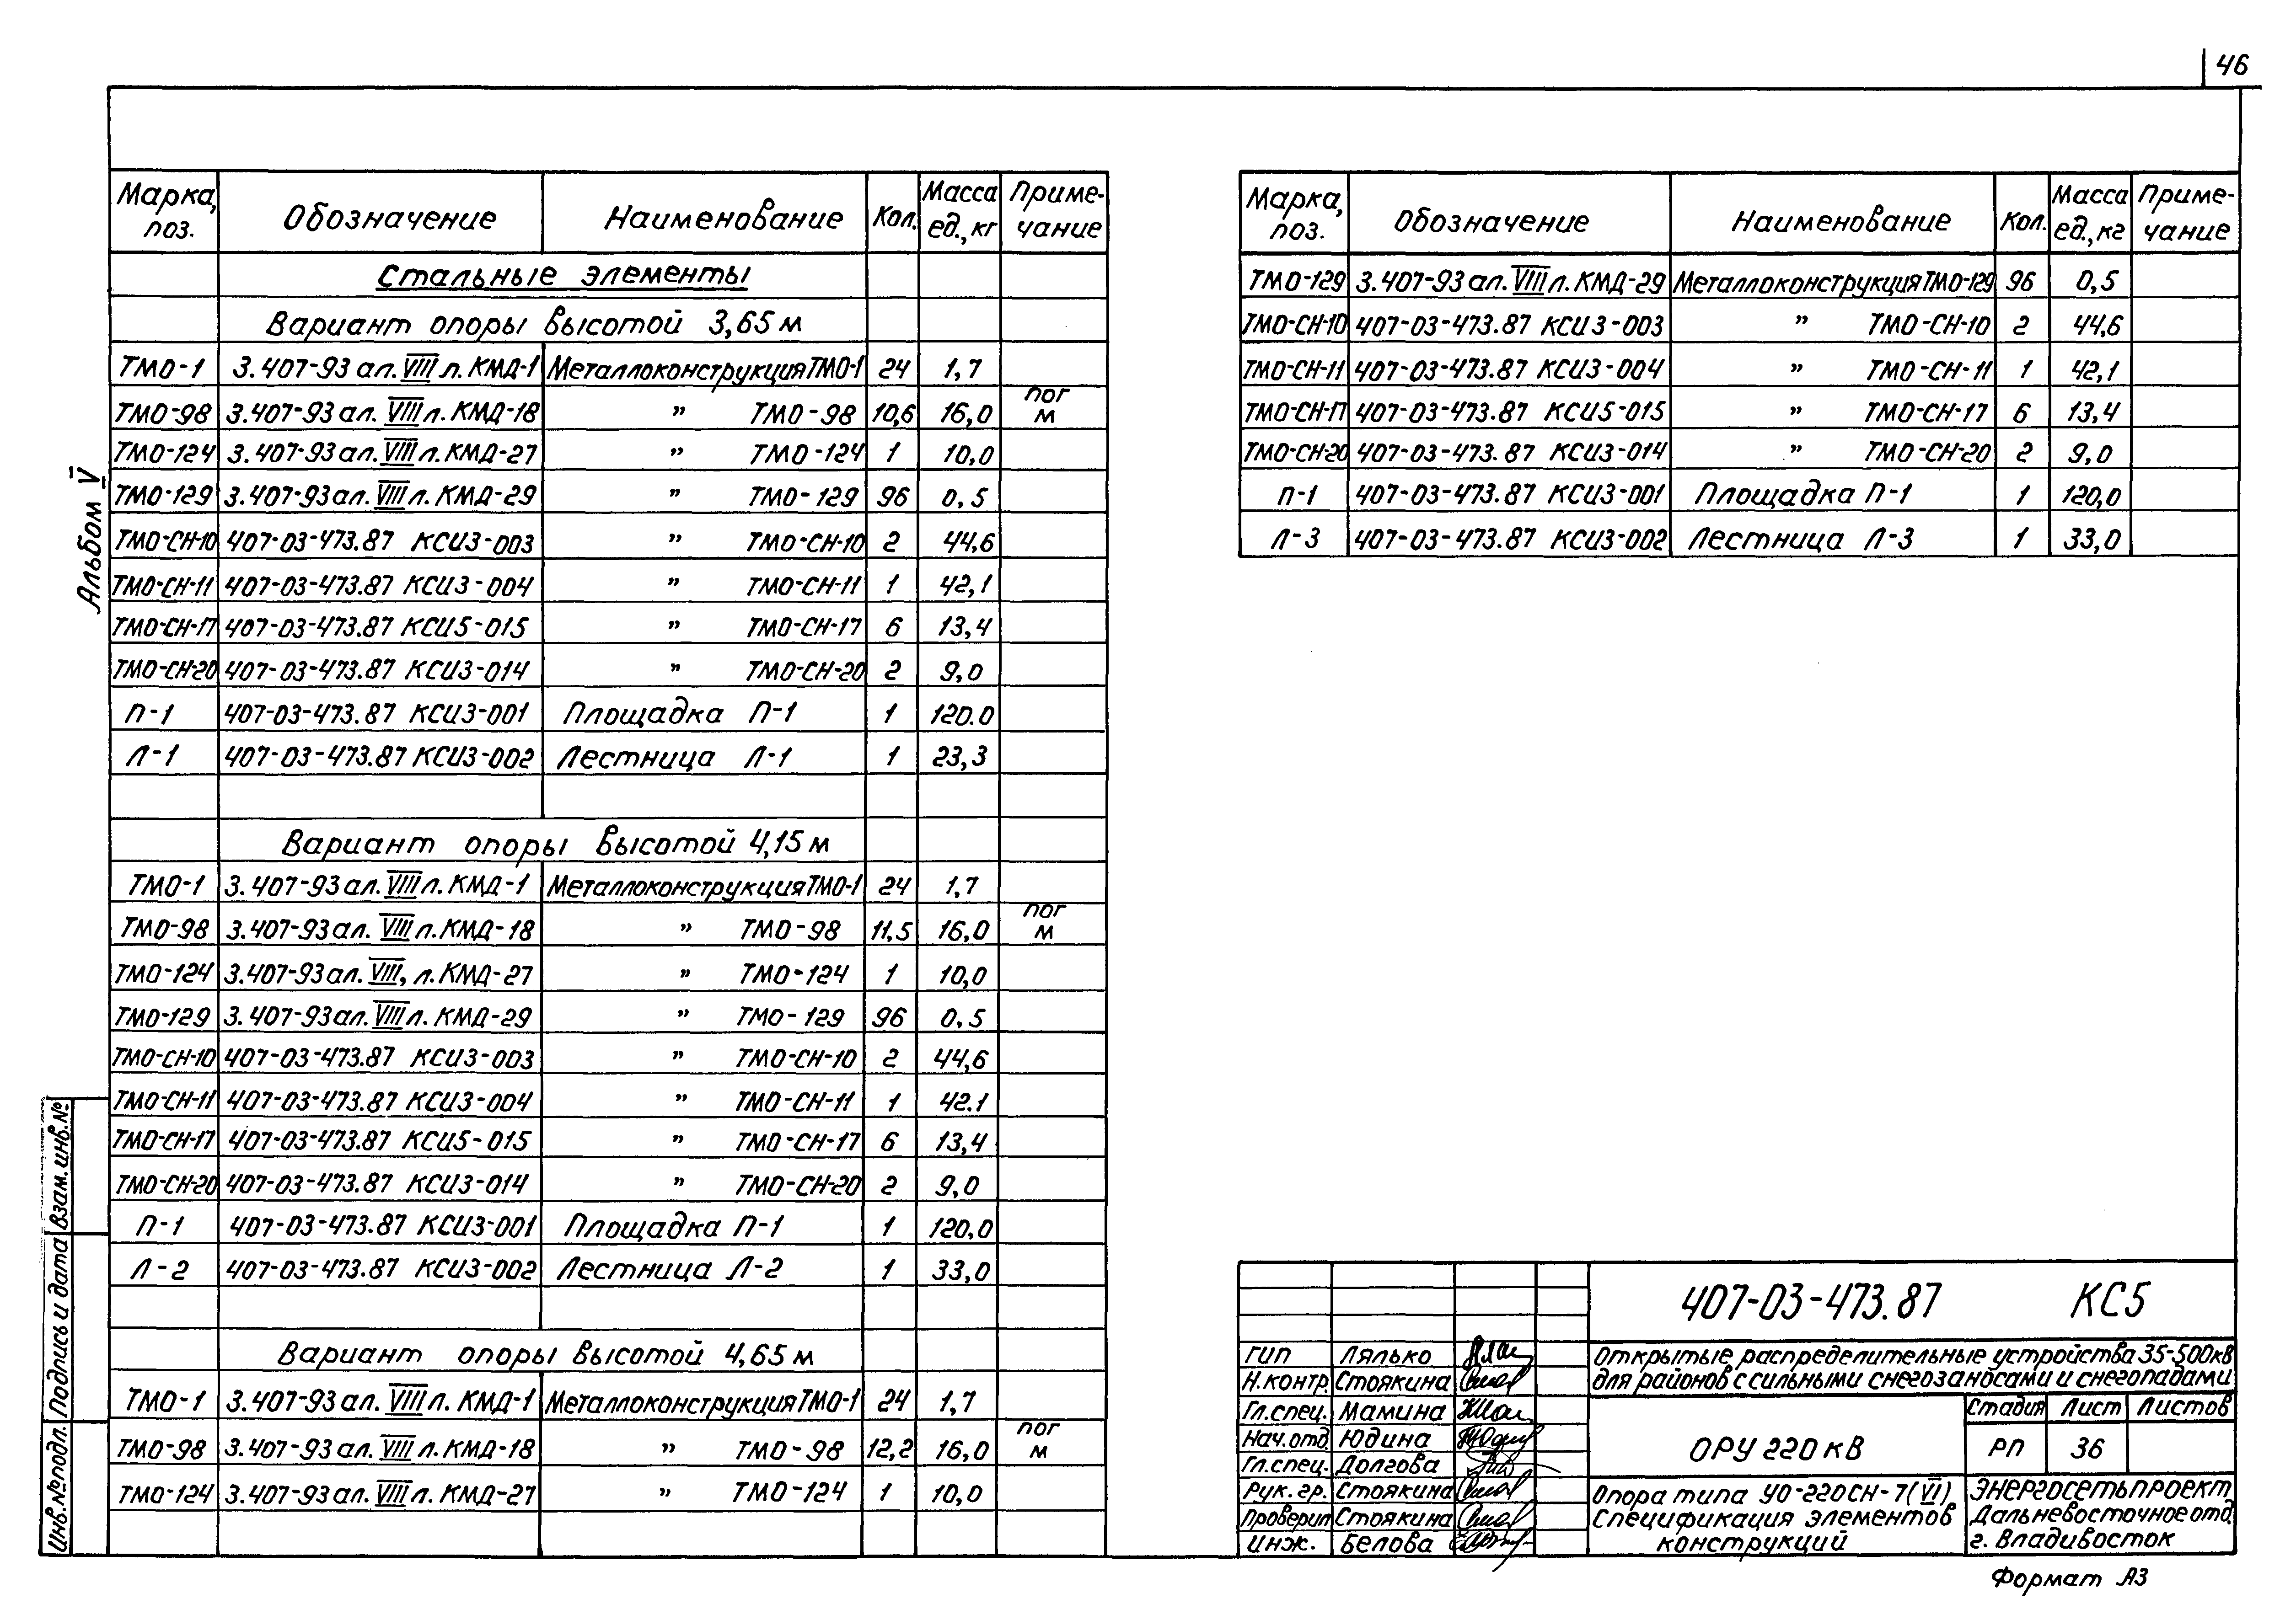 46
Альбом V
Марка, поз. Обозначение Наименование Кол. Масса ед., кг Приме-чание
Стальные элементы
Вариант опоры высотой 3,65 м
ТМО-1 3.407-93 ал. VIII л. КМД-1 Металлоконструкция ТМО-1 24 1,7
ТМО-98 3.407-93 ал. VIII л. КМД-18 " ТМО-98 10,6 16,0 пог м
ТМО-124 3.407-93 ал. VIII л. КМД-27 " ТМО-124 1 10,0
ТМО-129 3.407-93 ал. VIII л. КМД-29 " ТМО-129 96 0,5
ТМО-СН-10 407-03-473.87 КСИ3-003 " ТМО-СН-10 2 44,6
ТМО-СН-11 407-03-473.87 КСИ3-004 " ТМО-СН-11 1 42,1
ТМО-СН-17 407-03-473.87 КСИ5-015 " ТМО-СН-17 6 13,4
ТМО-СН-20 407-03-473.87 КСИ3-014 " ТМО-СН-20 2 9,0
П-1 407-03-473.87 КСИ3-001 Площадка П-1 1 120.0
Л-1 407-03-473.87 КСИ3-002 Лестница Л-1 1 23,3
Вариант опоры высотой 4,15 м
ТМО-1 3.407-93 ал. VIII л. КМД-1 Металлоконструкция ТМО-1 24 1,7
ТМО-98 3.407-93 ал. VIII л. КМД-18 " ТМО-98 11,5 16,0 пог м
ТМО-124 3.407-93 ал. VIII, л. КМД-27 " ТМО-124 1 10,0
ТМО-129 3.407-93 ал. VIII л. КМД-29 " ТМО-129 96 0,5
ТМО-СН-10 407-03-473.87 КСИ3-003 " ТМО-СН-10 2 44,6
ТМО-СН-11 407-03-473.87 КСИ3-004 " ТМО-СН-11 1 42.1
ТМО-СН-17 407-03-473.87 КСИ5-015 " ТМО-СН-17 6 13,4
ТМО-СН-20 407-03-473.87 КСИ3-014 " ТМО-СН-20 2 9,0
П-1 407-03-473.87 КСИ3-001 Площадка П-1 1 120,0
Л-2 407-03-473.87 КСИ3-002 Лестница Л-2 1 33,0
Вариант опоры высотой 4,65 м
ТМО-1 3.407-93 ал. VIII л. КМД-1 Металлоконструкция ТМО-1 24 1,7
ТМО-98 3.407-93 ал. VIII л. КМД-18 " ТМО-98 12,2 16,0 пог м
ТМО-124 3.407-93 ал. VIII л. КМД-27 " ТМО-124 1 10,0
Марка, поз. Обозначение Наименование Кол. Масса ед., кг Приме-чание
ТМО-129 3.407-93 ал. VIII л. КМД-29 Металлоконструкция ТМО-129 96 0,5
ТМО-СН-10 407-03-473.87 КСИ3-003 " ТМО-СН-10 2 44,6
ТМО-СН-11 407-03-473.87 КСИ3-004 " ТМО-СН-11 1 42,1
ТМО-СН-17 407-03-473.87 КСИ5-015 " ТМО-СН-17 6 13,4
ТМО-СН-20 407-03-473.87 КСИ3-014 " ТМО-СН-20 2 9,0
П-1 407-03-473.87 КСИ3-001 Площадка П-1 1 120,0
Л-3 407-03-473.87 КСИ3-002 Лестница Л-3 1 33,0
Инв.№подл. Подпись и дата Взам.инв.№
407-03-473.87 КС5
Открытые распределительные устройства 35-500кВ
для районов с сильными снегозаносами и снегопадами
ГИП Лялько
Н.контр. Стоякина
Гл.спец. Мамина
Нач.отд. Юдина
Гл.спец. Долгова
Рук.гр. Стоякина
Проверил Стоякина
Инж. Белова
ОРУ 220 кВ
Стадия Лист Листов
РП 36
Опора типа УО-220СН-7(VI)
Спецификация элементов
конструкций
Энергосетьпроект
Дальневосточное отд.
г. Владивосток
Формат А3